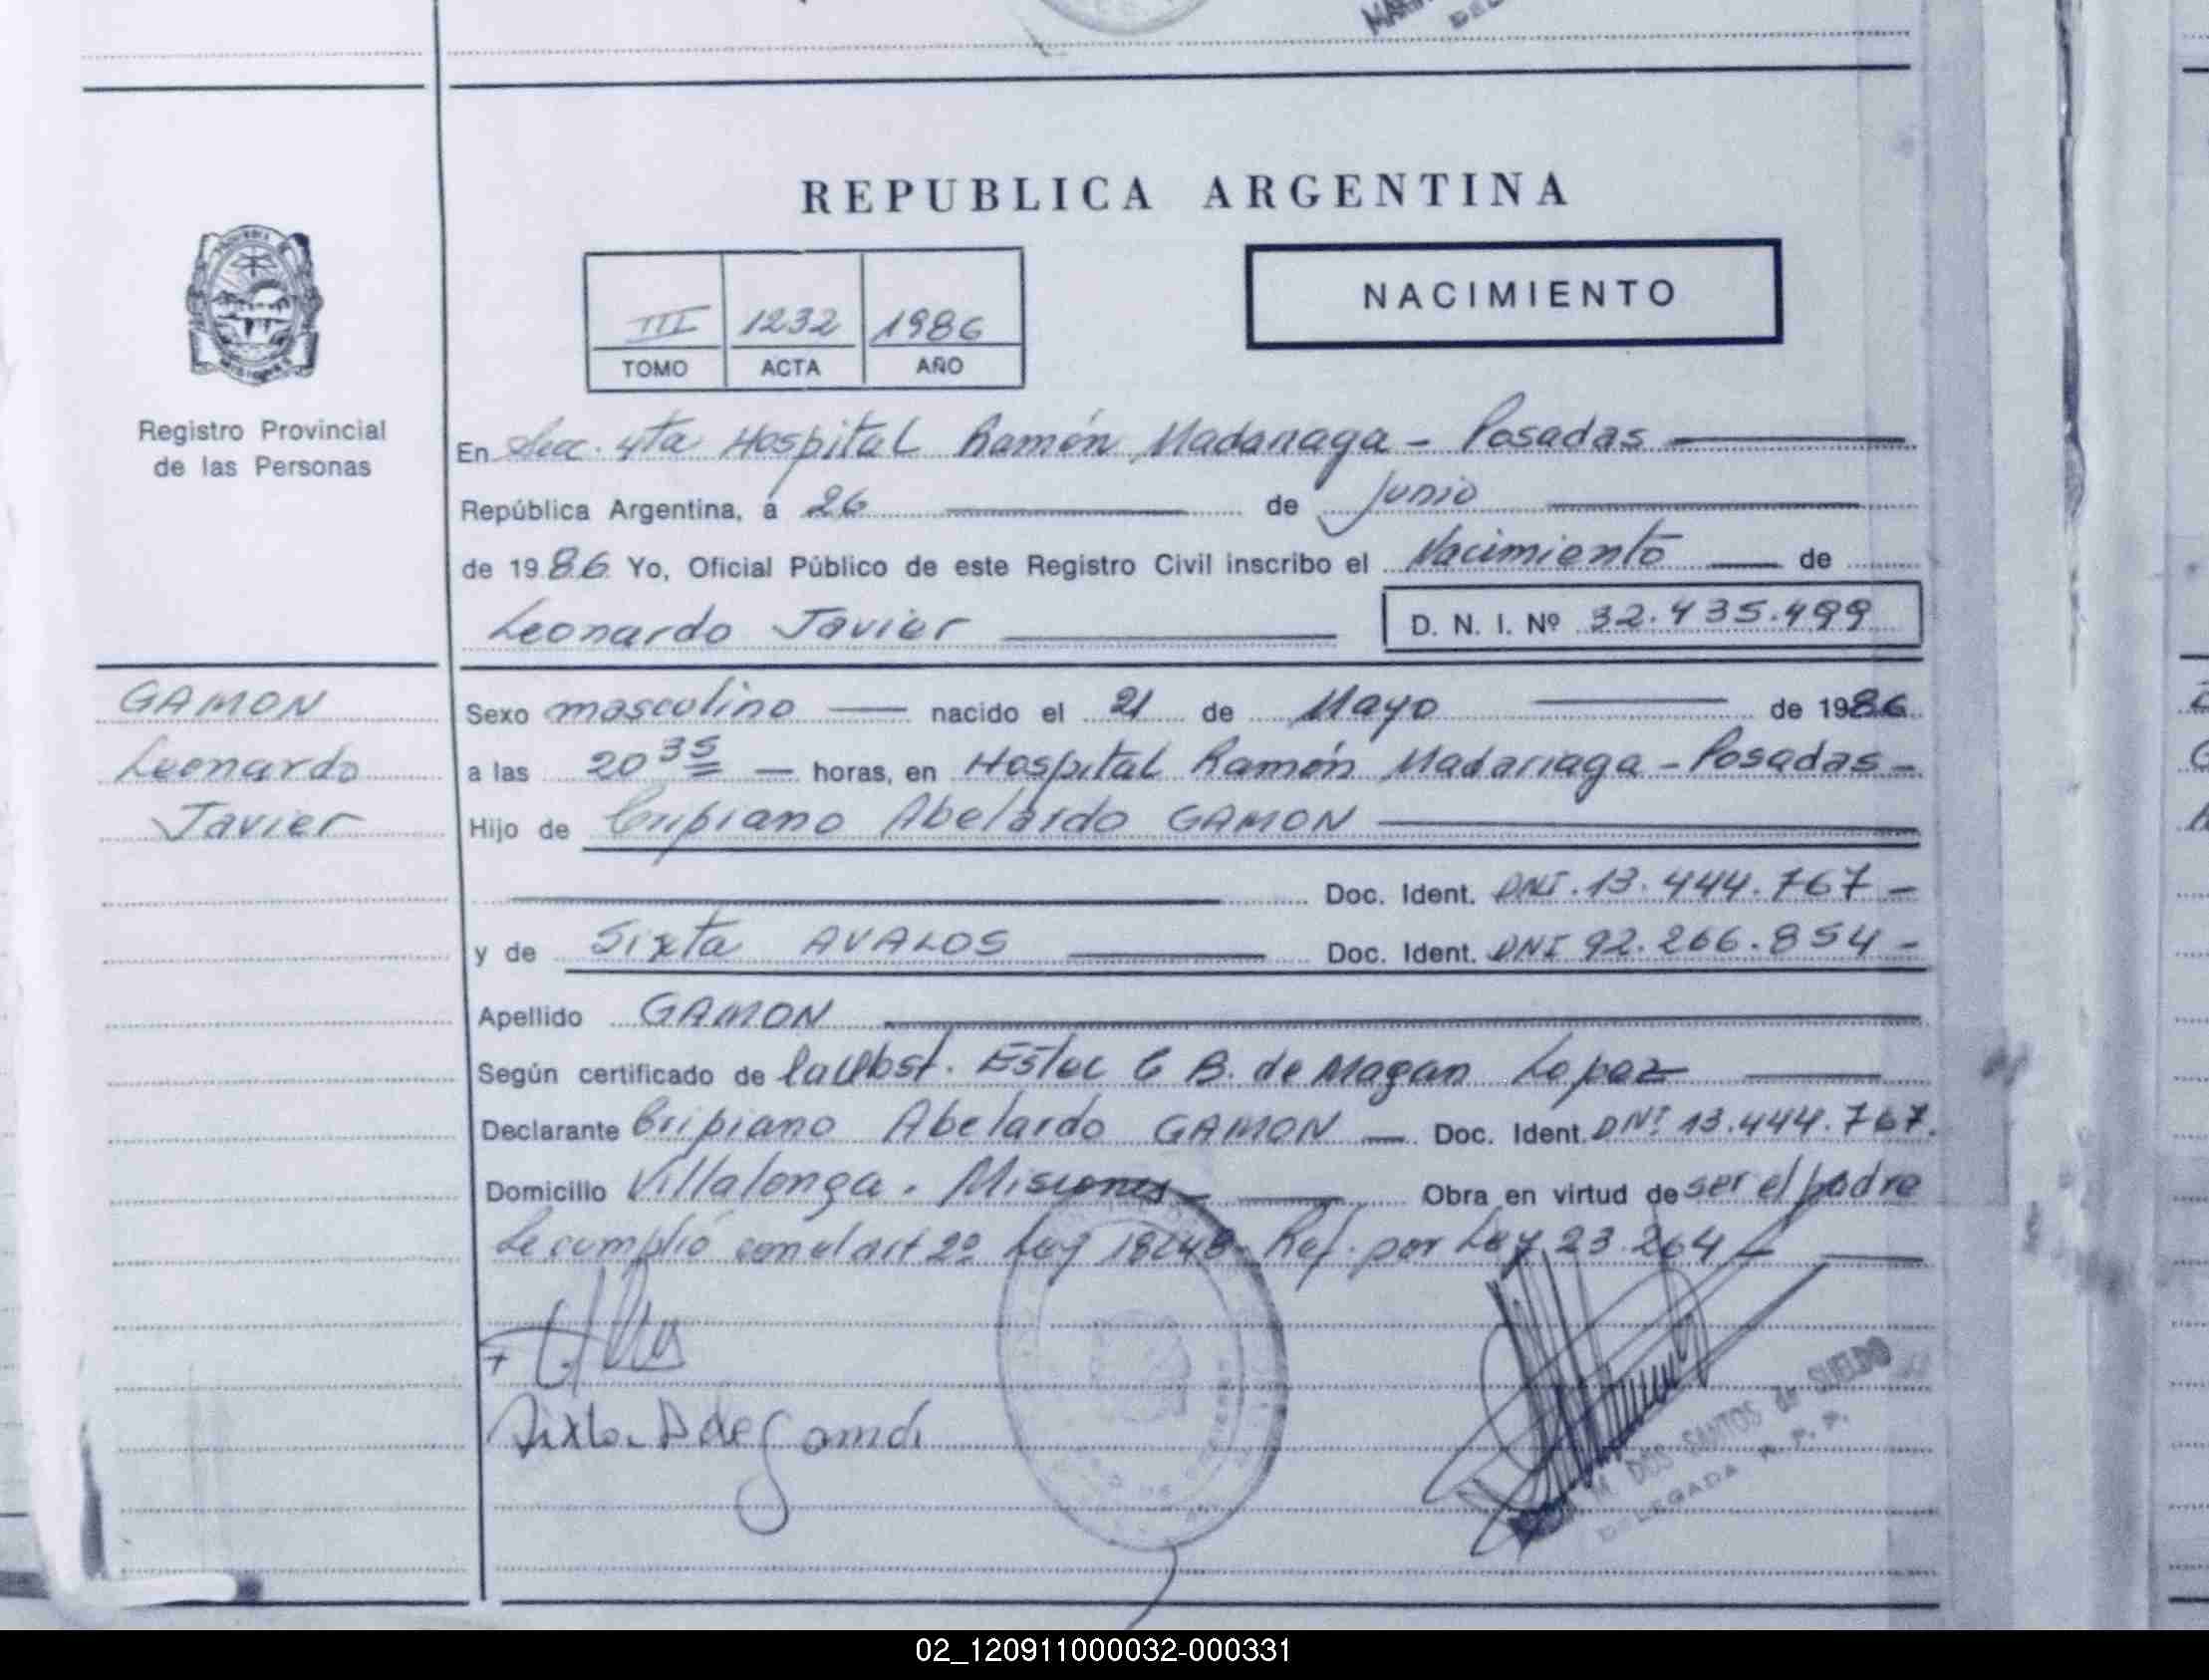 REPUBLICA ARGENTINA
NACIMIENTO
III 1232 1986
TOMO ACTA AÑO
Registro Provincial
de las Personas
En Secc. 4ta Hospital Ramón Madariaga - Posadas
República Argentina, a 26 de Junio
de 1986 Yo, Oficial Público de este Registro Civil inscribo el Nacimiento de
Leonardo Javier D. N. I. Nº 32.435.499
GAMON
Leonardo
Javier
Sexo masculino nacido el 21 de Mayo de 1986
a las 20 35 horas, en Hospital Ramón Madariaga - Posadas -
Hijo de Cripiano Abelardo GAMON
Doc. Ident. DNI. 13.444.767 -
y de Sixta AVALOS Doc. Ident. DNI 92.266.854 -
Apellido GAMON
Según certificado de la Obst. B. de Magan Lopez
Declarante Cripiano Abelardo GAMON Doc. Ident. DNI 13.444.767.
Domicilio Villalonga. Misiones Obra en virtud de ser el padre
Se cumplió con el art 2º Ley 18248. Ref. por Ley 23.264 -
Sixta A de Gamon
M. DOS SANTOS de SUELDO
DELEGADA R. P. P.
02_120911000032-000331